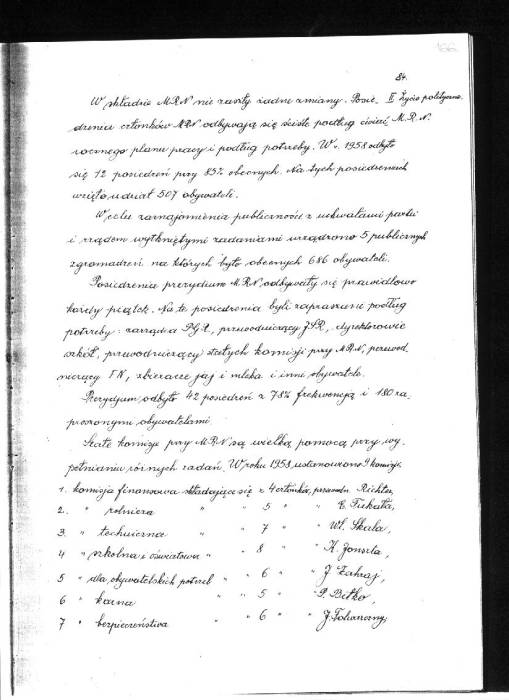 166
84.
W składzie M.R.N nie zaszły żadne zmiany. Posie- II Życie polityczne
dzenia członków MRN odbywają się ściśle podług ćwierć M.R.N.
rocznego planu pracy i podług potrzeby. W r. 1958 odbyło
się 12 posiedzeń przy 85% obecnych. Na tych posiedzeniach
wzięło udział 507 obywateli.
W celu zaznajomienia publiczności z uchwałami partii
i rządem wytkniętymi zadaniami urządzono 5 publicznych
zgromadzeń na których było obecnych 686 obywateli.
Posiedzenia prezydium M.R.N. odbywały się prawidłowo
każdy piątek. Na te posiedzenia byli zapraszani podług
potrzeby: zarządca PGR, przewodniczący JSR, dyrektorowie
szkół, przewodniczący stałych komisji przy MRN, przewod-
niczący FN, zbieracze jaj i mleka i inni obywatele.
Prezydium odbyło 42 posiedzeń z 78% frekwencją i 180 za-
proszonymi obywatelami.
Stałe komisje przy M.R.N są wielką pomocą przy wy-
pełnianiu różnych zadań. W roku 1958 ustanowiono 9 komisje.
1. komisja finansowa składająca się z 4 członków, przewodn. Richter,
2. " rolnicza " " 5 " " E. Fukała,
3. " techniczna " " 7 " " Wł. Skala,
4 " szkolna i oświatowa " " 8 " " K. Jonszta,
5 " dla obywatelskich potrzeb " " 6 " " J. Zahraj,
6 " karna " " 5 " " P. Bitko,
7 " bezpieczeństwa " " 6 " " J.